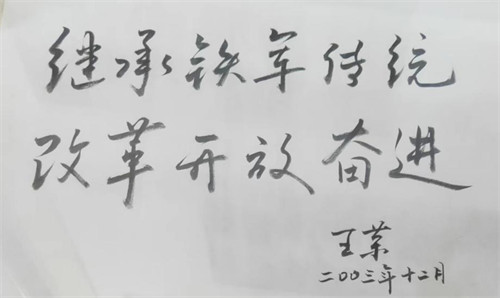 继承铁军传统
改革开放奋进
王荣
二〇〇三年十二月